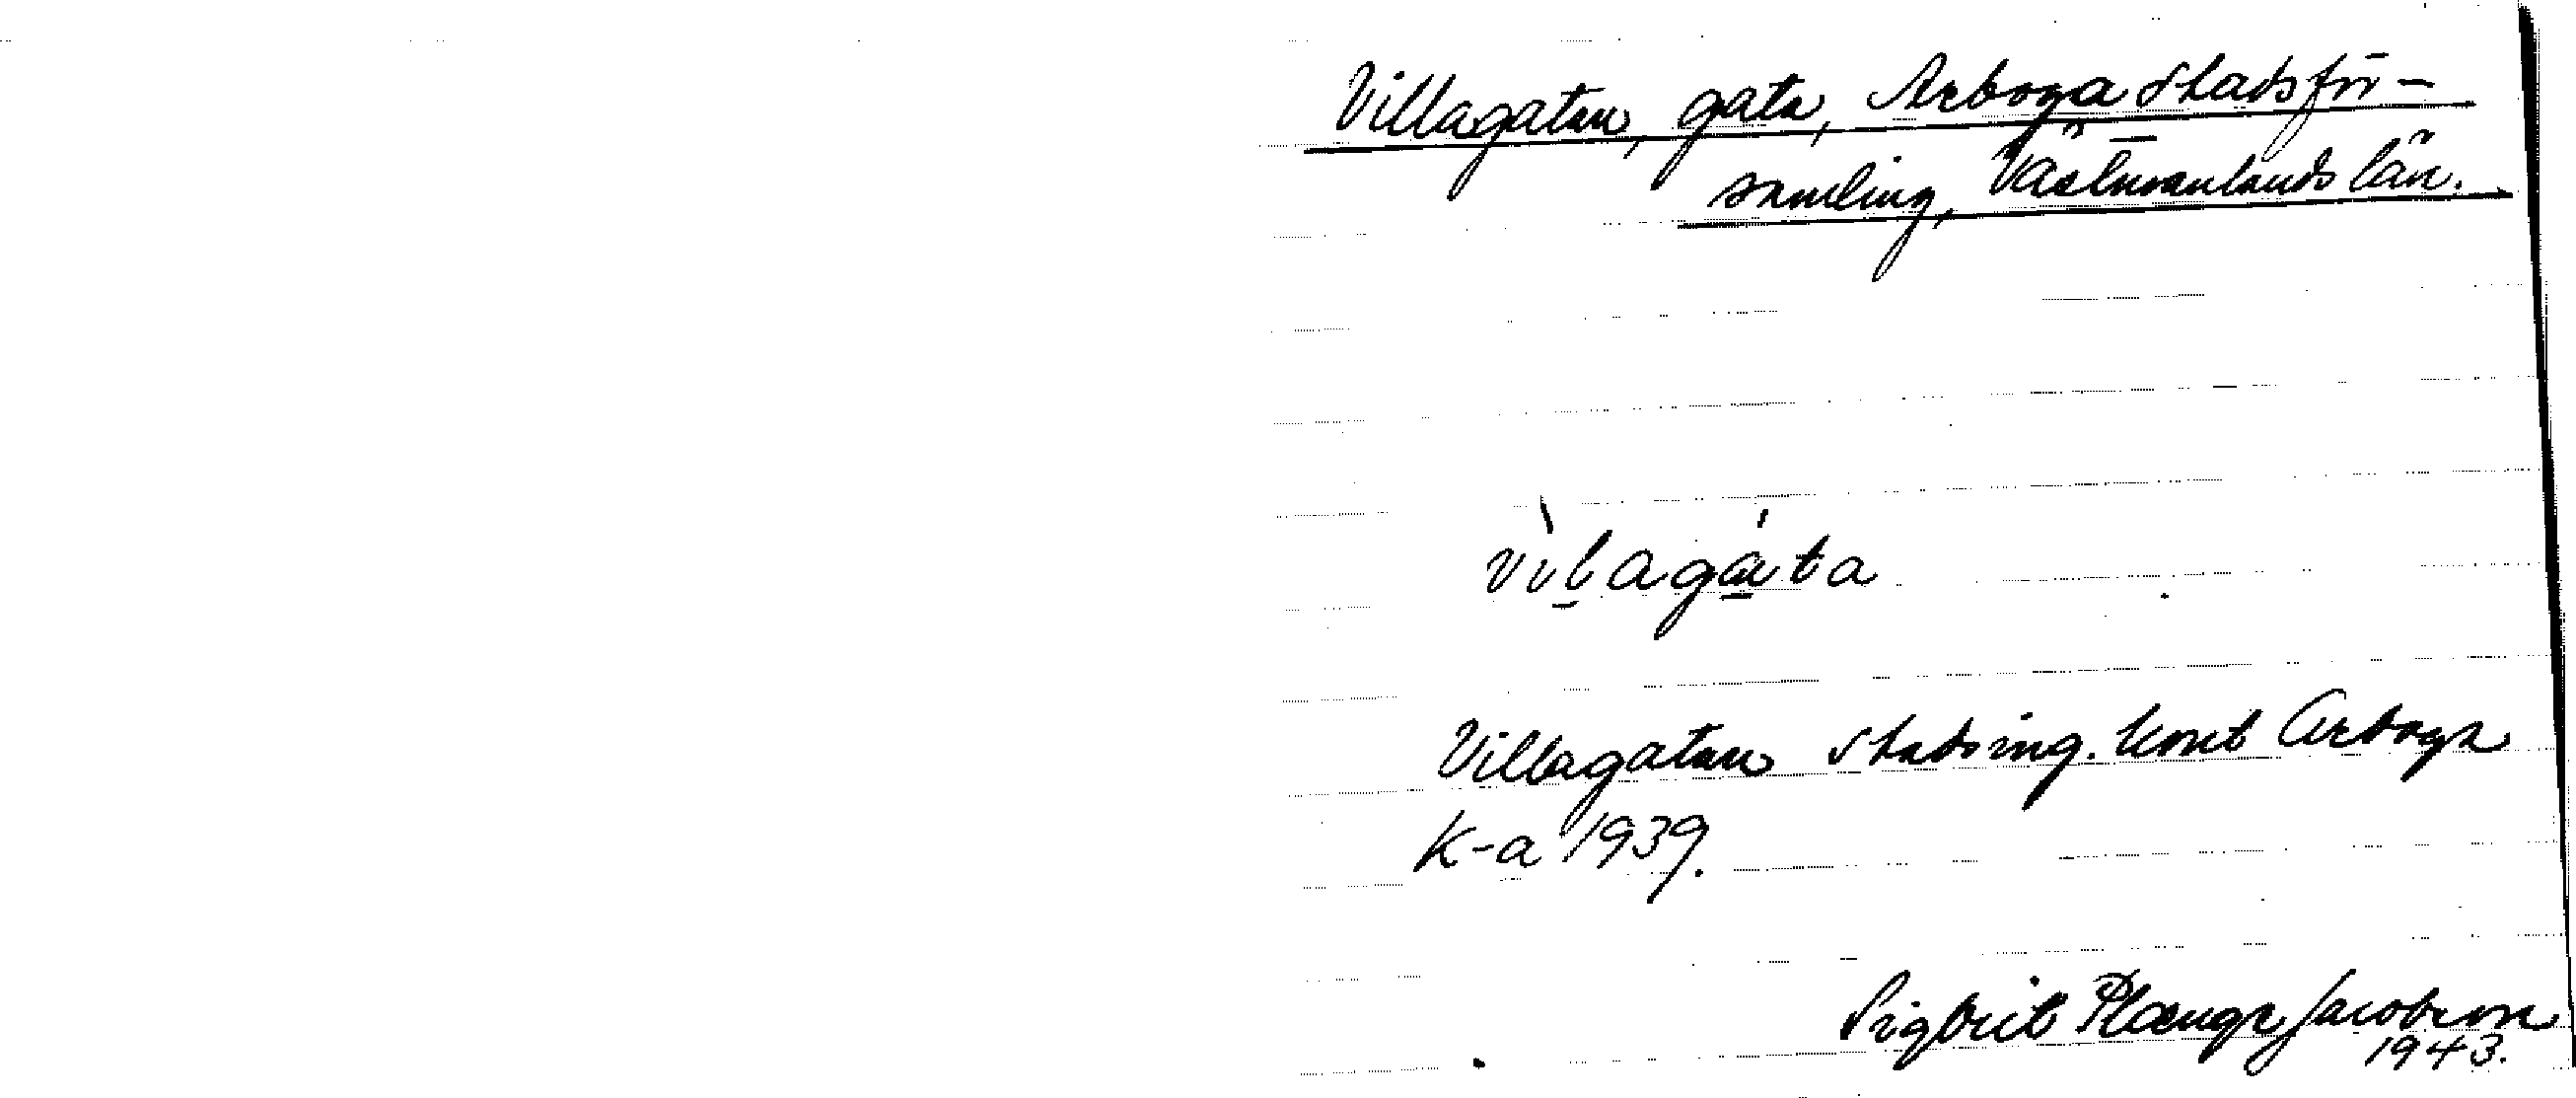 Villagatan, gata, Arboga stadsför-
samling, Västmanlands län.
vìlagáta
Villagatan stadsing. kont Arboga
K-a 1939.
Sigbrit Plænge Jacobson
1943.